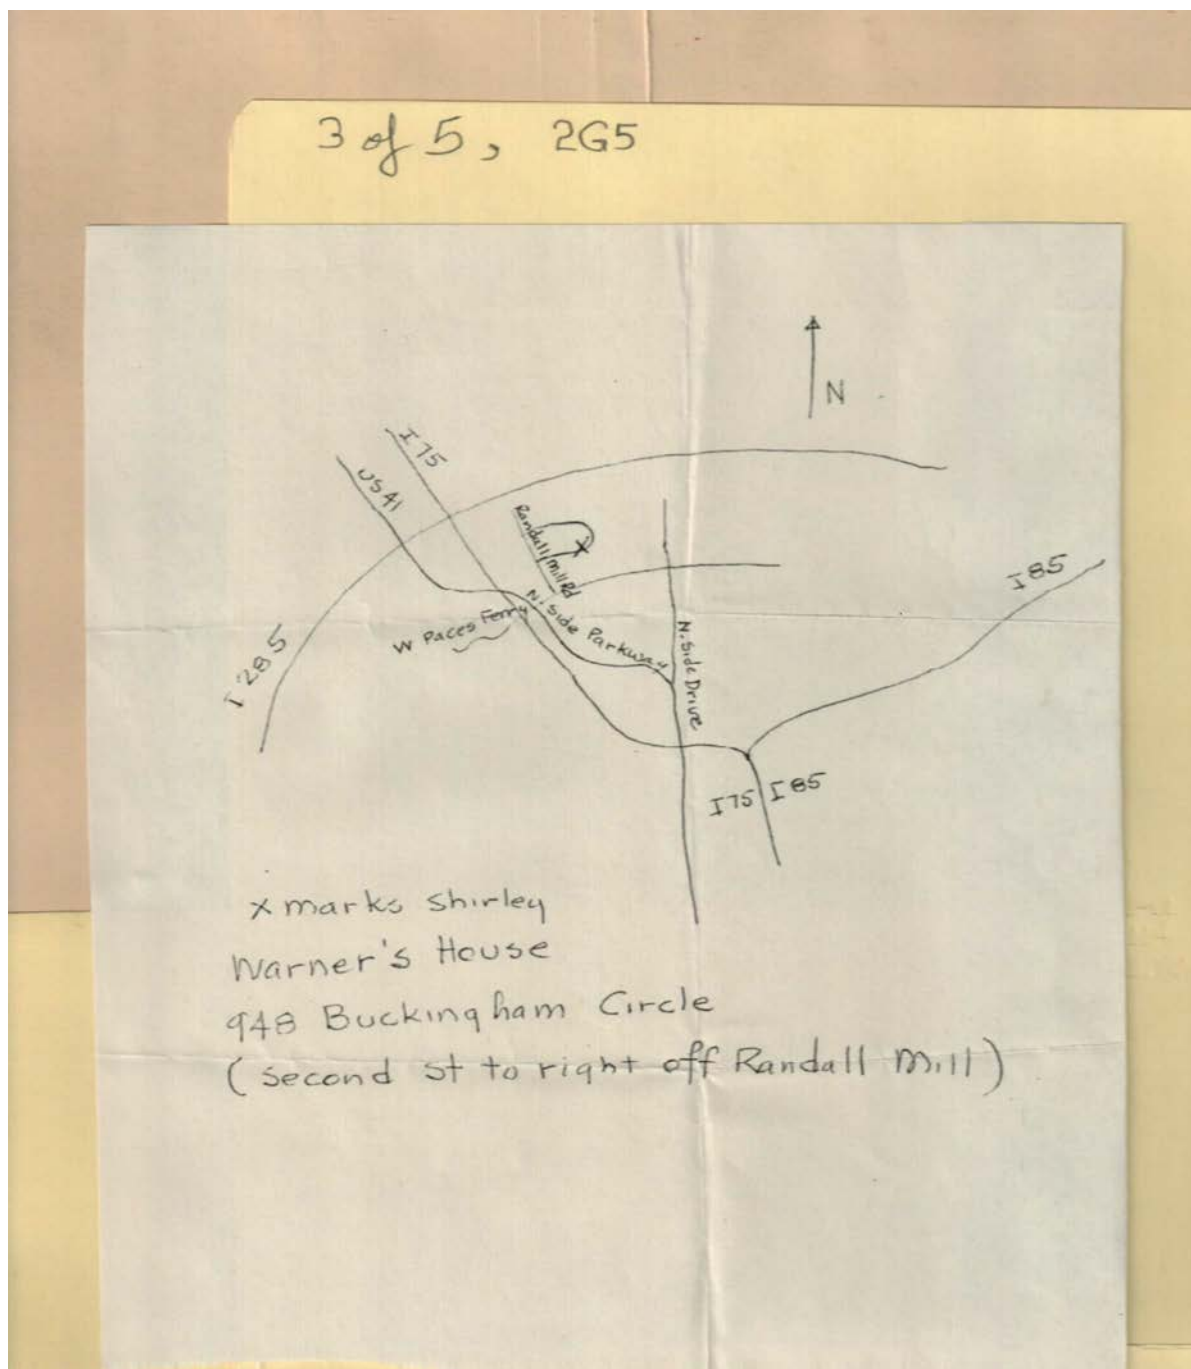 3 of 5, 2G5
N
I 75
US 41
Randall Mill Rd
I 85
N. Side Parkway
W Paces Ferry
N. Side Drive
I 285
I 75 I 85
x marks Shirley
Warner's House
948 Buckingham Circle
(second st to right off Randall Mill)